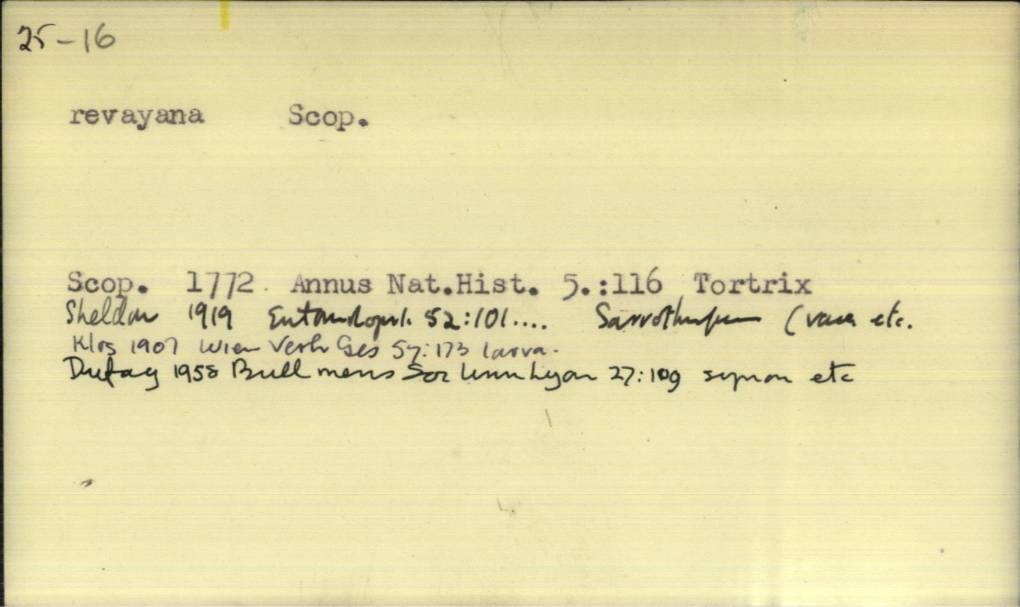 25-16
revayana Scop.
Scop. 1772. Annus Nat.Hist. 5.:116 Tortrix
Sheldon 1919 Entomologist. 52:101.... Sarrothripus (vars etc.
Klos 1907 Wien Verh Ges 57:173 larva.
Dufay 1958 Bull mens Soc Linn Lyon 27:109 synon etc